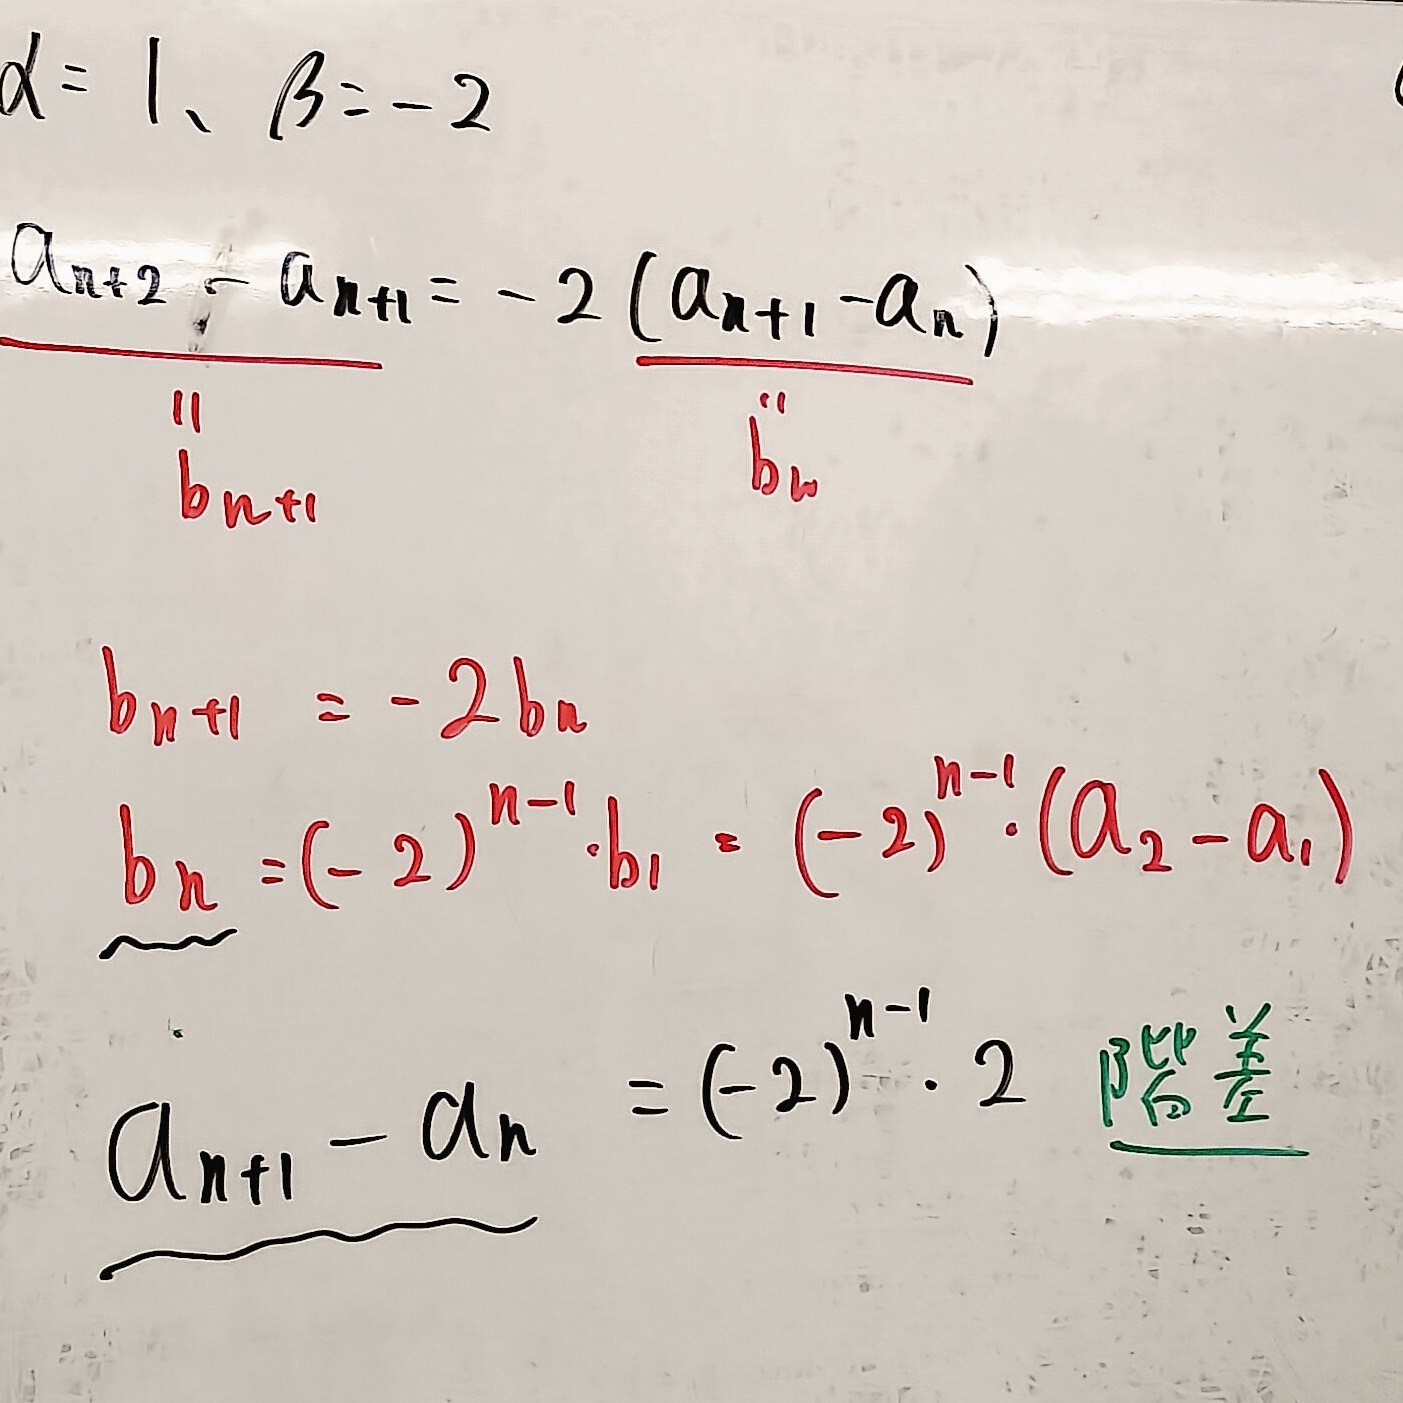 α=1、β=-2
a_{n+2} - a_{n+1} = -2(a_{n+1} - a_n)
〃 〃
b_{n+1} b_n
b_{n+1} = -2b_n
b_n = (-2)^{n-1}・b_1 = (-2)^{n-1}・(a_2 - a_1)
a_{n+1} - a_n = (-2)^{n-1}・2 階差